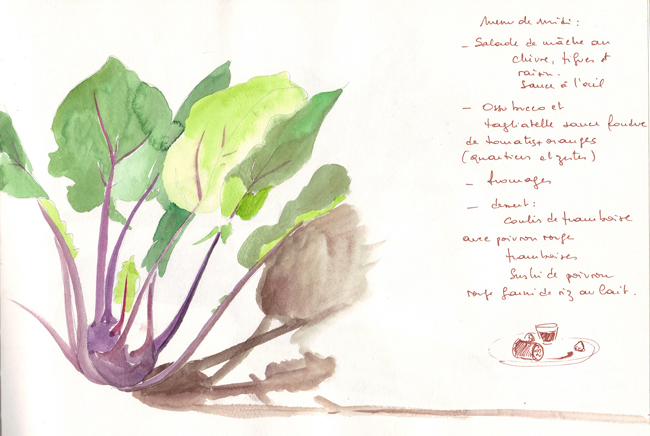 Menu de midi :
– Salade de mâche au
chèvre, figues et
raisin.
Sauce à l'œil
– Ossobuco et
tagliatelle sauce fondue
de tomates + oranges
(quartiers et zestes)
– fromages
– dessert :
coulis de framboise
avec poivron rouge
framboises
Sushi de poivron
rouge farci de riz au lait.